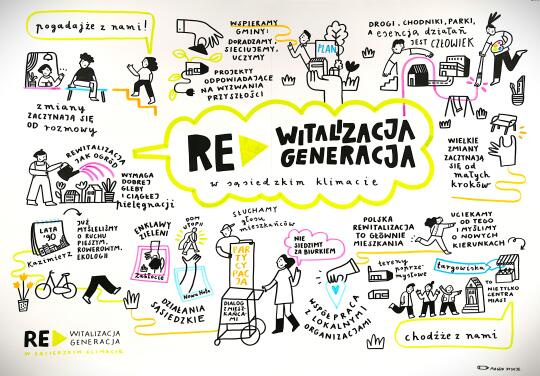 pogadajże z nami!
zmiany
ZACZYNAJĄ SIĘ
OD rozmowy
WSPIERAMY
GMINY:
DORADZAMY,
SIECIUJEMY,
UCZYMY
PROJEKTY
ODPOWIADAJĄCE
NA WYZWANIA
PRZYSZŁOŚCI
PLAN
DROGI, CHODNIKI, PARKI,
A esencją działań
JEST CZŁOWIEK
RE WITALIZACJA
GENERACJA
w sąsiedzkim klimacie
WIELKIE
ZMIANY
ZACZYNAJĄ
SIĘ OD
małych
kroków
REWITALIZACJA
JAK OGRÓD
WYMAGA
DOBREJ
GLEBY
I CIĄGŁEJ
pielęgnacji
LATA
'90
Kazimierz
JUŻ
MYŚLELIŚMY
O RUCHU
PIESZYM,
ROWEROWYM,
EKOLOGII
ENKLAWY
ZIELENI
Zabłocie
DOM
UTOPII
Nowa Huta
DZIAŁANIA
SĄSIEDZKIE
SŁUCHAMY
głosu
mieszkańców
PAR
TY
CY
PA
CJA
DIALOG
Z MIESZ-
KAŃCA-
MI
NIE
SIEDZIMY
ZA BIURKIEM
WSPÓŁPRACA
Z LOKALNYMI
ORGANIZACJAMI
POLSKA
REWITALIZACJA
TO GŁÓWNIE
MIESZKANIA
UCIEKAMY
OD TEGO
I MYŚLIMY
O NOWYCH
KIERUNKACH
tereny
poprze-
mysłowe
targowiska
TO
NIE TYLKO
CENTRA
MIAST
chodźże z nami
RE WITALIZACJA
GENERACJA
W SĄSIEDZKIM KLIMACIE